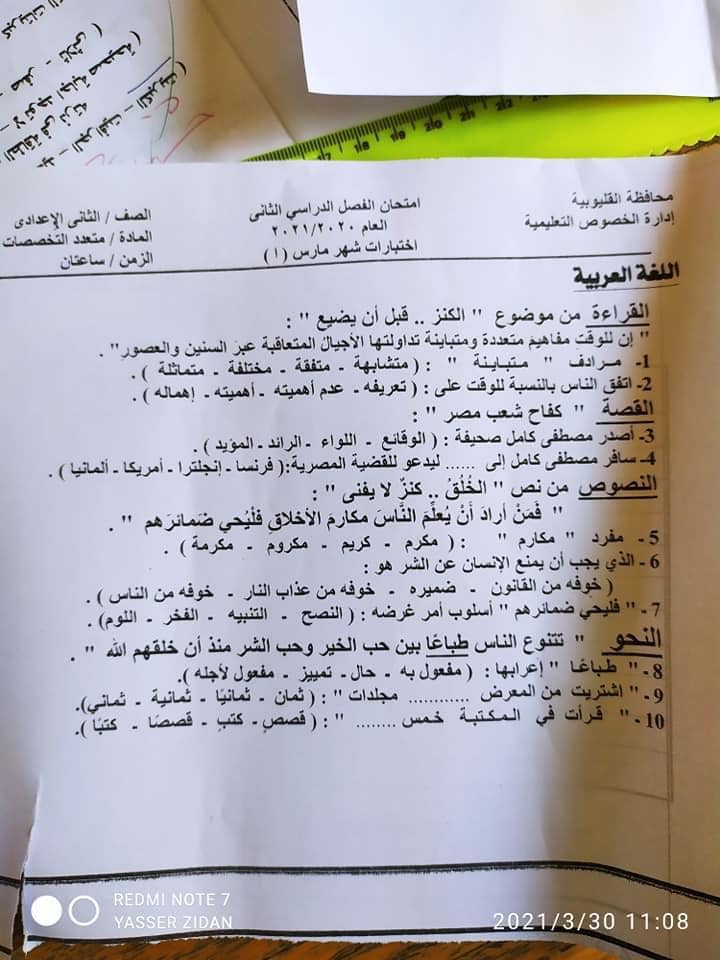 كبريتات
( الكبريت – الجرافيت –
صفر – ثلاثى )
– لا توجد اجابة صحيحة )
17 18 19 20 21 22 2
محافظة القليوبية
إدارة الخصوص التعليمية
امتحان الفصل الدراسي الثانى
العام ٢٠٢١/٢٠٢٠
اختبارات شهر مارس (١)
الصف / الثانى الإعدادى
المادة / متعدد التخصصات
الزمن / ساعتان
اللغة العربية
القراءة من موضوع " الكنز .. قبل أن يضيع " :
" إن للوقت مفاهيمَ متعددة ومتباينة تداولتها الأجيالُ المتعاقبة عبرَ السنين والعصور" .
1- مرادف " متباينة " : ( متشابهة - متفقة - مختلفة - متماثلة ) .
2- اتفق الناس بالنسبة للوقت على : ( تعريفه - عدم أهميته - أهميته - إهماله ) .
القصة " كفاح شعب مصر " :
3- أصدر مصطفى كامل صحيفة : ( الوقائع - اللواء - الرائد - المؤيد ) .
4- سافر مصطفى كامل إلى ...... ليدعو للقضية المصرية:( فرنسا - إنجلترا - أمريكا - ألمانيا ) .
النصوص من نص " الخُلُقُ .. كنزٌ لا يفنى " :
" فَمَنْ أرادَ أنْ يُعلِّمَ النَّاسَ مكارمَ الأخلاقِ فلْيُحي ضَمائرَهم " .
5- مفرد " مكارم " : ( مكرم - كريم - مكروم - مكرمة ) .
6- الذي يجب أن يمنع الإنسان عن الشر هو :
( خوفه من القانون - ضميره - خوفه من عذاب النار - خوفه من الناس ) .
7- " فليحي ضمائرهم " أسلوب أمر غرضه : ( النصح - التنبيه - الفخر - اللوم) .
النحو " تتنوع الناس طباعًا بين حب الخير وحب الشر منذ أن خلقهم الله " .
8- " طباعًا " إعرابها : ( مفعول به - حال - تمييز - مفعول لأجله ).
9- " اشتريت من المعرض ............ مجلدات " : ( ثمان - ثمانيًا - ثمانية - ثماني).
10- " قرأت في المكتبة خمس ........ " : ( قصصٍ - كتبٍ - قصصًا - كتبًا ).
REDMI NOTE 7
YASSER ZIDAN
2021/3/30 11:08